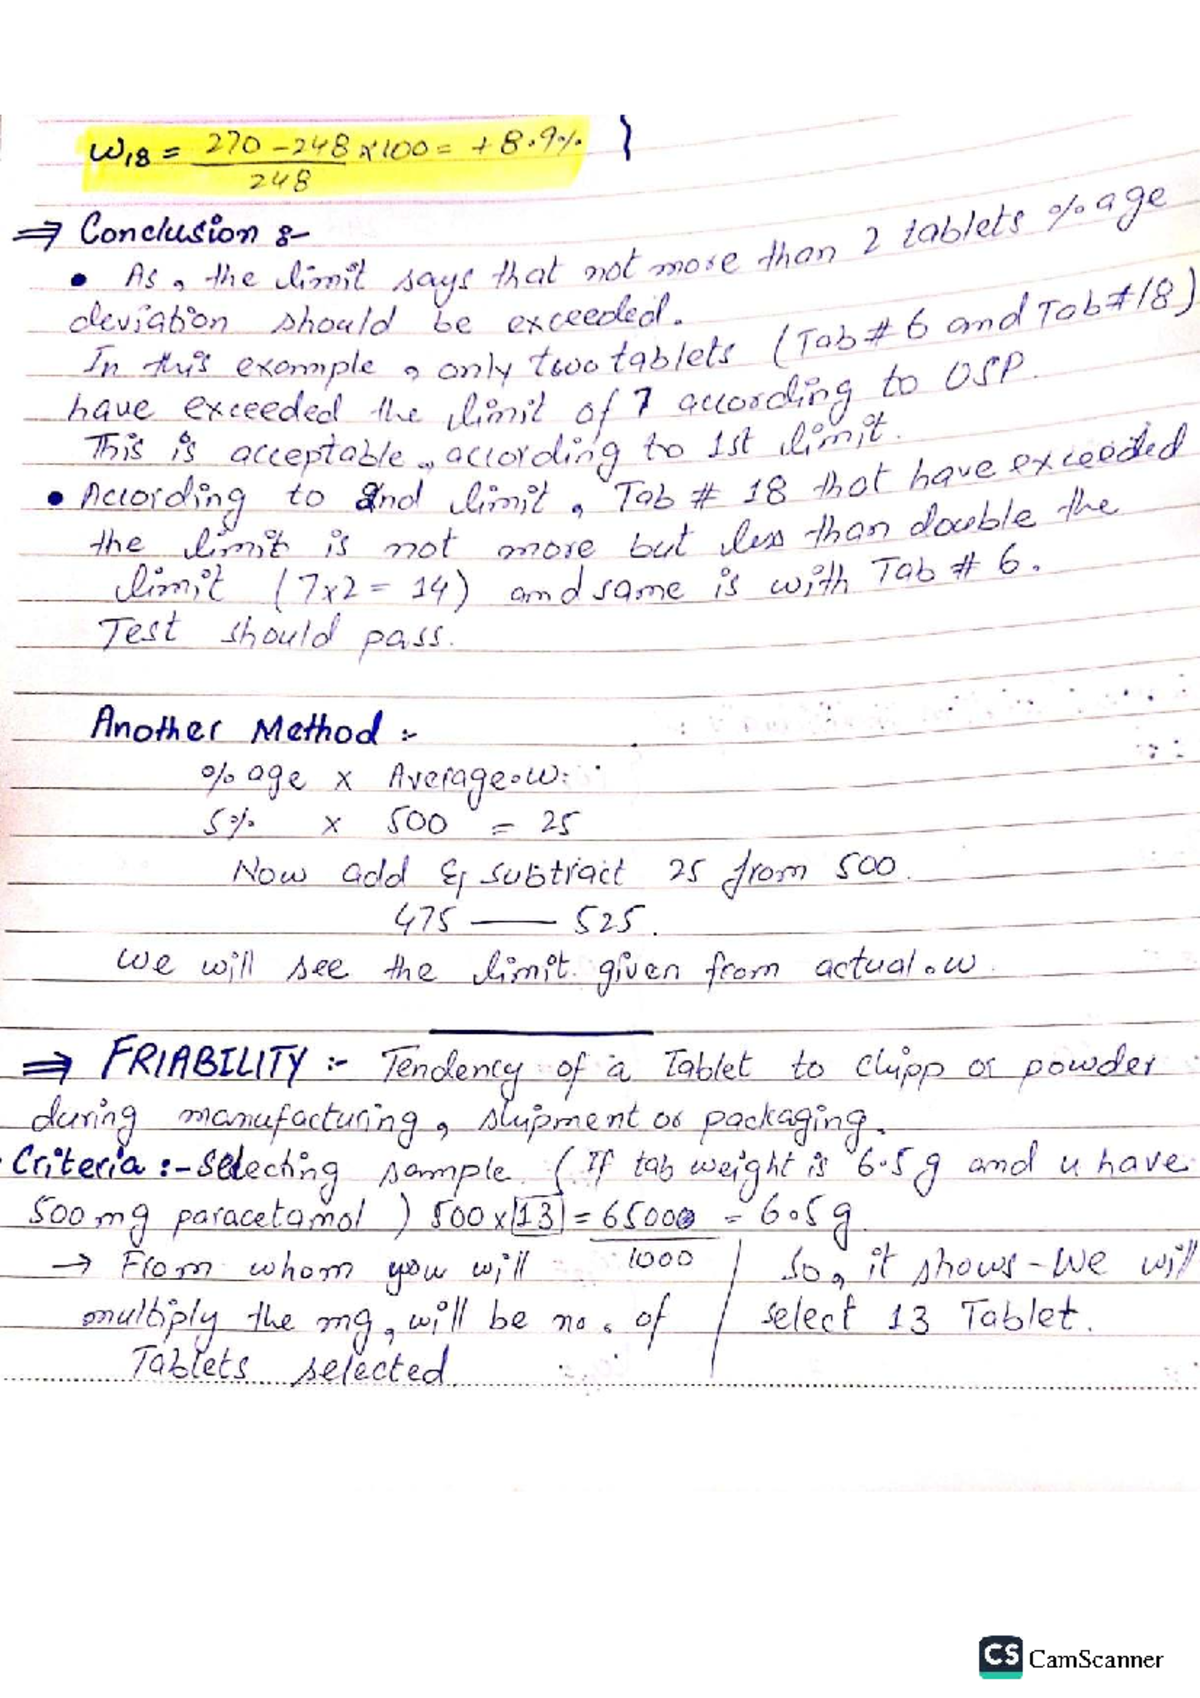 W18 = 270 - 248 x 100 = + 8.9%. }
248
⇒ Conclusion :-
• As, the limit says that not more than 2 tablets %age
deviation should be exceeded.
In this example, only two tablets (Tab # 6 and Tab # 18)
have exceeded the limit of 7 according to USP.
This is acceptable, according to 1st limit.
• According to 2nd limit, Tab # 18 that have exceeded
the limit is not more but less than double the
limit (7x2 = 14) and same is with Tab # 6.
Test should pass.
Another Method :-
%age x Average.w:
5% x 500 = 25
Now add & subtract 25 from 500.
475 — 525.
We will see the limit given from actual.w
⇒ FRIABILITY :- Tendency of a Tablet to chipp or powder
during manufacturing, shipment or packaging.
Criteria :- Selecting sample (If tab weight is 6.5g and u have
500mg paracetamol) 500 x 13 = 65000 = 6.5g
1000
→ From whom you will
multiply the mg, will be no. of
Tablets selected.
So, it shows - We will
select 13 Tablet.
CS CamScanner